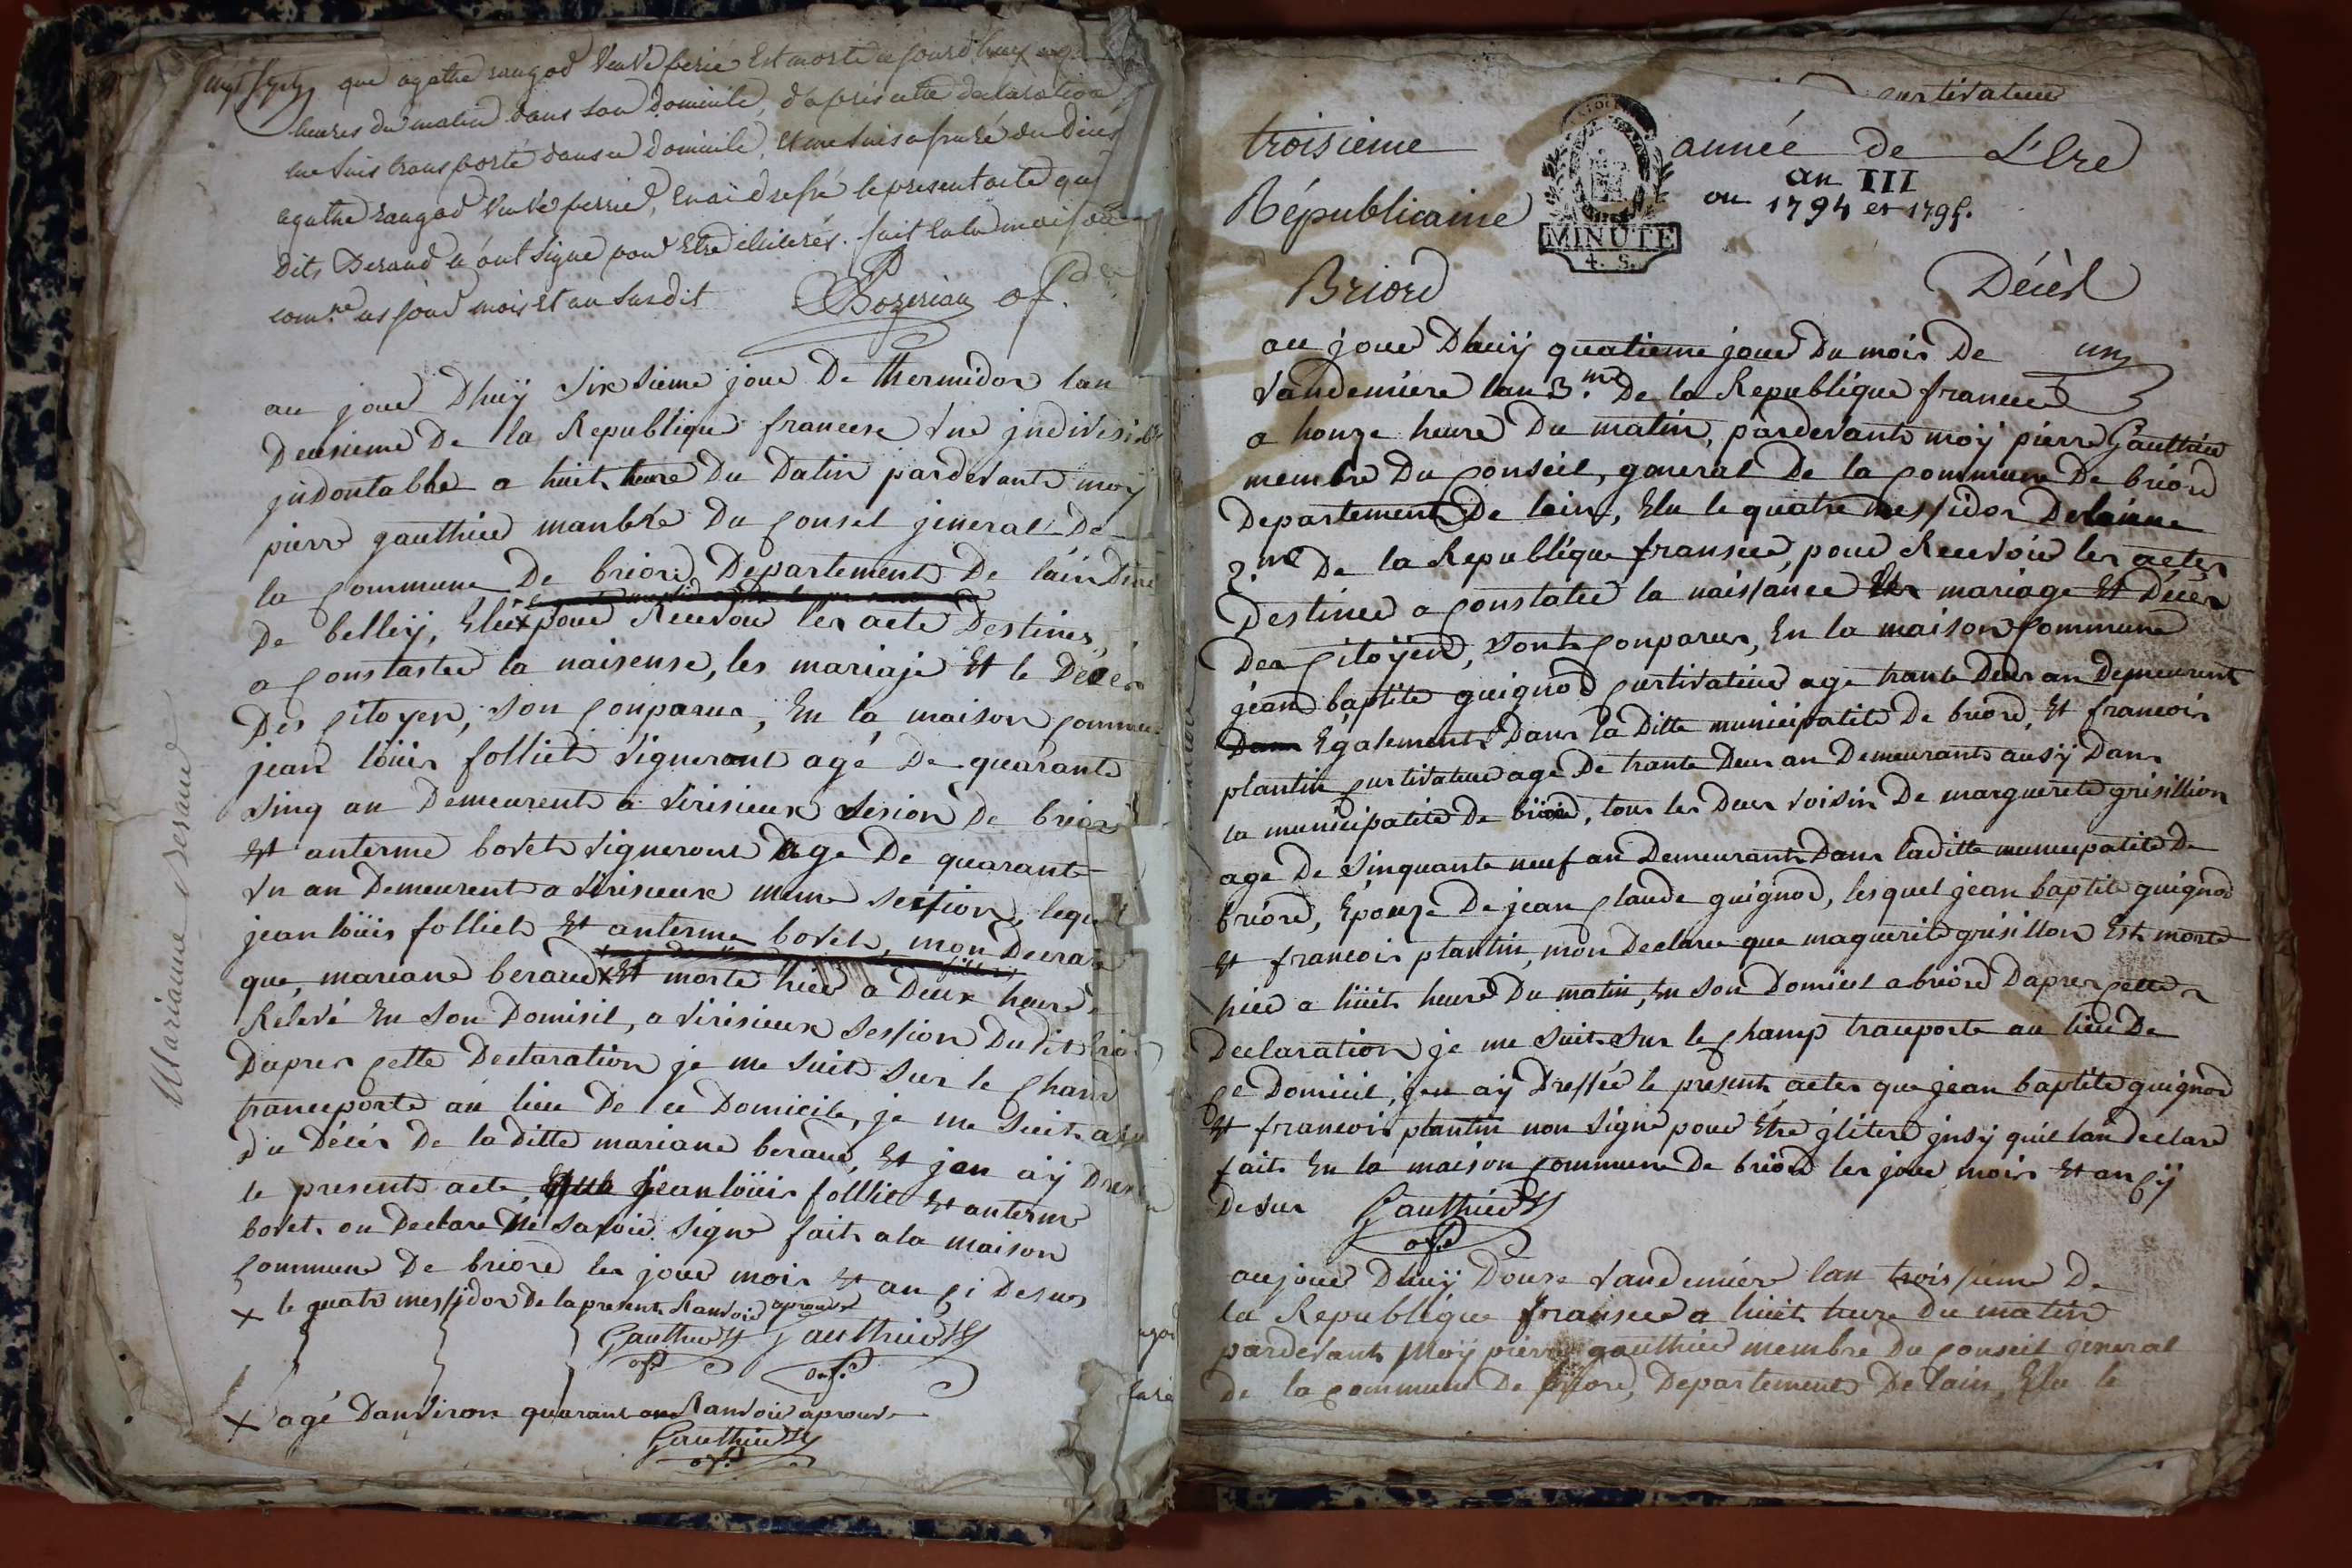 que agathe rangod veuve ferié Est morte ce jourd'huy
heures du matin dans son domicile, d'après cette declaration
me suis transporté dans ce domicile, et me suis assuré du Décès
agathe rangod veuve ferrié, en ai dressé le present acte que
dits Beraud n'ont signé pour Etre illiterés. fait en la maison
com.ne les jour mois et an susdit Bozerian of.
au jour Dhuÿ sixsieme jour De thermidor lan
Deusieme De la Republique francese une jndivisible
jndontabhe a huit heure Du Datin pardevant moÿ
pierre gauthier manbre Du Consel jeneral De
la Commune De briord Departement De lain
De belleÿ, Elu x pour Recevoir les acte Destines
a Constaster la naisense, les mariaje Et le Décés
Des Citoyen, son Conparus, En la maison
jean loüis folliet vigneront agé De quarante
sinq an Demeurent a verisieux sesion De briord
Et anterme boret vigneront age De quarante
un an Demeurent a verisieux meme section,
jean loüis folliet Et anterme boret, mon
que, mariane beraud x Et morte hier a Deux heure
Relevé En son Domisil, a verisieux session Dudit
Dapres Cette Declaration je me suit sur le Cham
tranceporte au lieu De ce Domicile, je me suit
du Décés De laditte mariane beraud, Et jen aÿ
le present acte, que jean loüis folliet Et anterme
boret on Declare Ne savoir signe fait a la maison
Commune De briord les jour mois Et an Ci Desus
x le quatre messidor De la presente Ranvoie aprouve
Gauthier Gauthier
of. of.
x agé Danviron quarant an Ranvoie aprouve
Gauthier
of.
Marianne Beraud
Curtivateur
troisieme année de L'Ere
an III
Républicaine ou 1794 et 1795.
MINUTE
4. S.
Briord Décès
au jour Dhuÿ quatieme jour Du mois De un
vandemiere lan 3.me De la Republique francee
a honze heure Du matin, pardevant moÿ pierre Gauthier
membre Du Conseil, general De la Commune De briord
Departement De lain, Elu le quatre messidor Delanne
2.me De la Republique fransee, pour Recevoir les actes
Destinee a Constater la naissance Les mariage Et Décés
Des Citoÿen, sont Conparus, En la maison Commune
jean baptite guignod Curtivateur age trante Deux an Demeurent
Dans Également Dans la Ditte municipatite De briord, Et francois
plantin Curtivateur age De trante Deux an Demeurant ausÿ Dans
la municipatite De briord, tous les Deux voisin De marguerite grisillion
age De sinquante neuf an Demeurant Dans laditte municipatite De
briord, Épouze De jean Claude guignod, lesquel jean baptite guignod
Et francois plantin, mon Declare que maguerite grisillon Est morte
hier a hüit heure Du matin, En son Domicil a briord Dapres Cette
Declaration je me suit sur le Champ tranporte au lieu De
Ce Domicil, jen aÿ Dressée le present actes que jean baptite guignod
Et francois plantin non signe pour Etre jlitere jnsÿ quil lon declare
fait En la maison Commune De briord les jour mois Et an Cÿ
Desus Gauthier
of.
au jour Dhuÿ Douse vandemiere lan troissieme De
la Republique fransee a hüit heure du matin
pardevant Moÿ pierre gauthier membre Du Conseil jeneral
De la Commune De briord, Departement De lain, Elu le